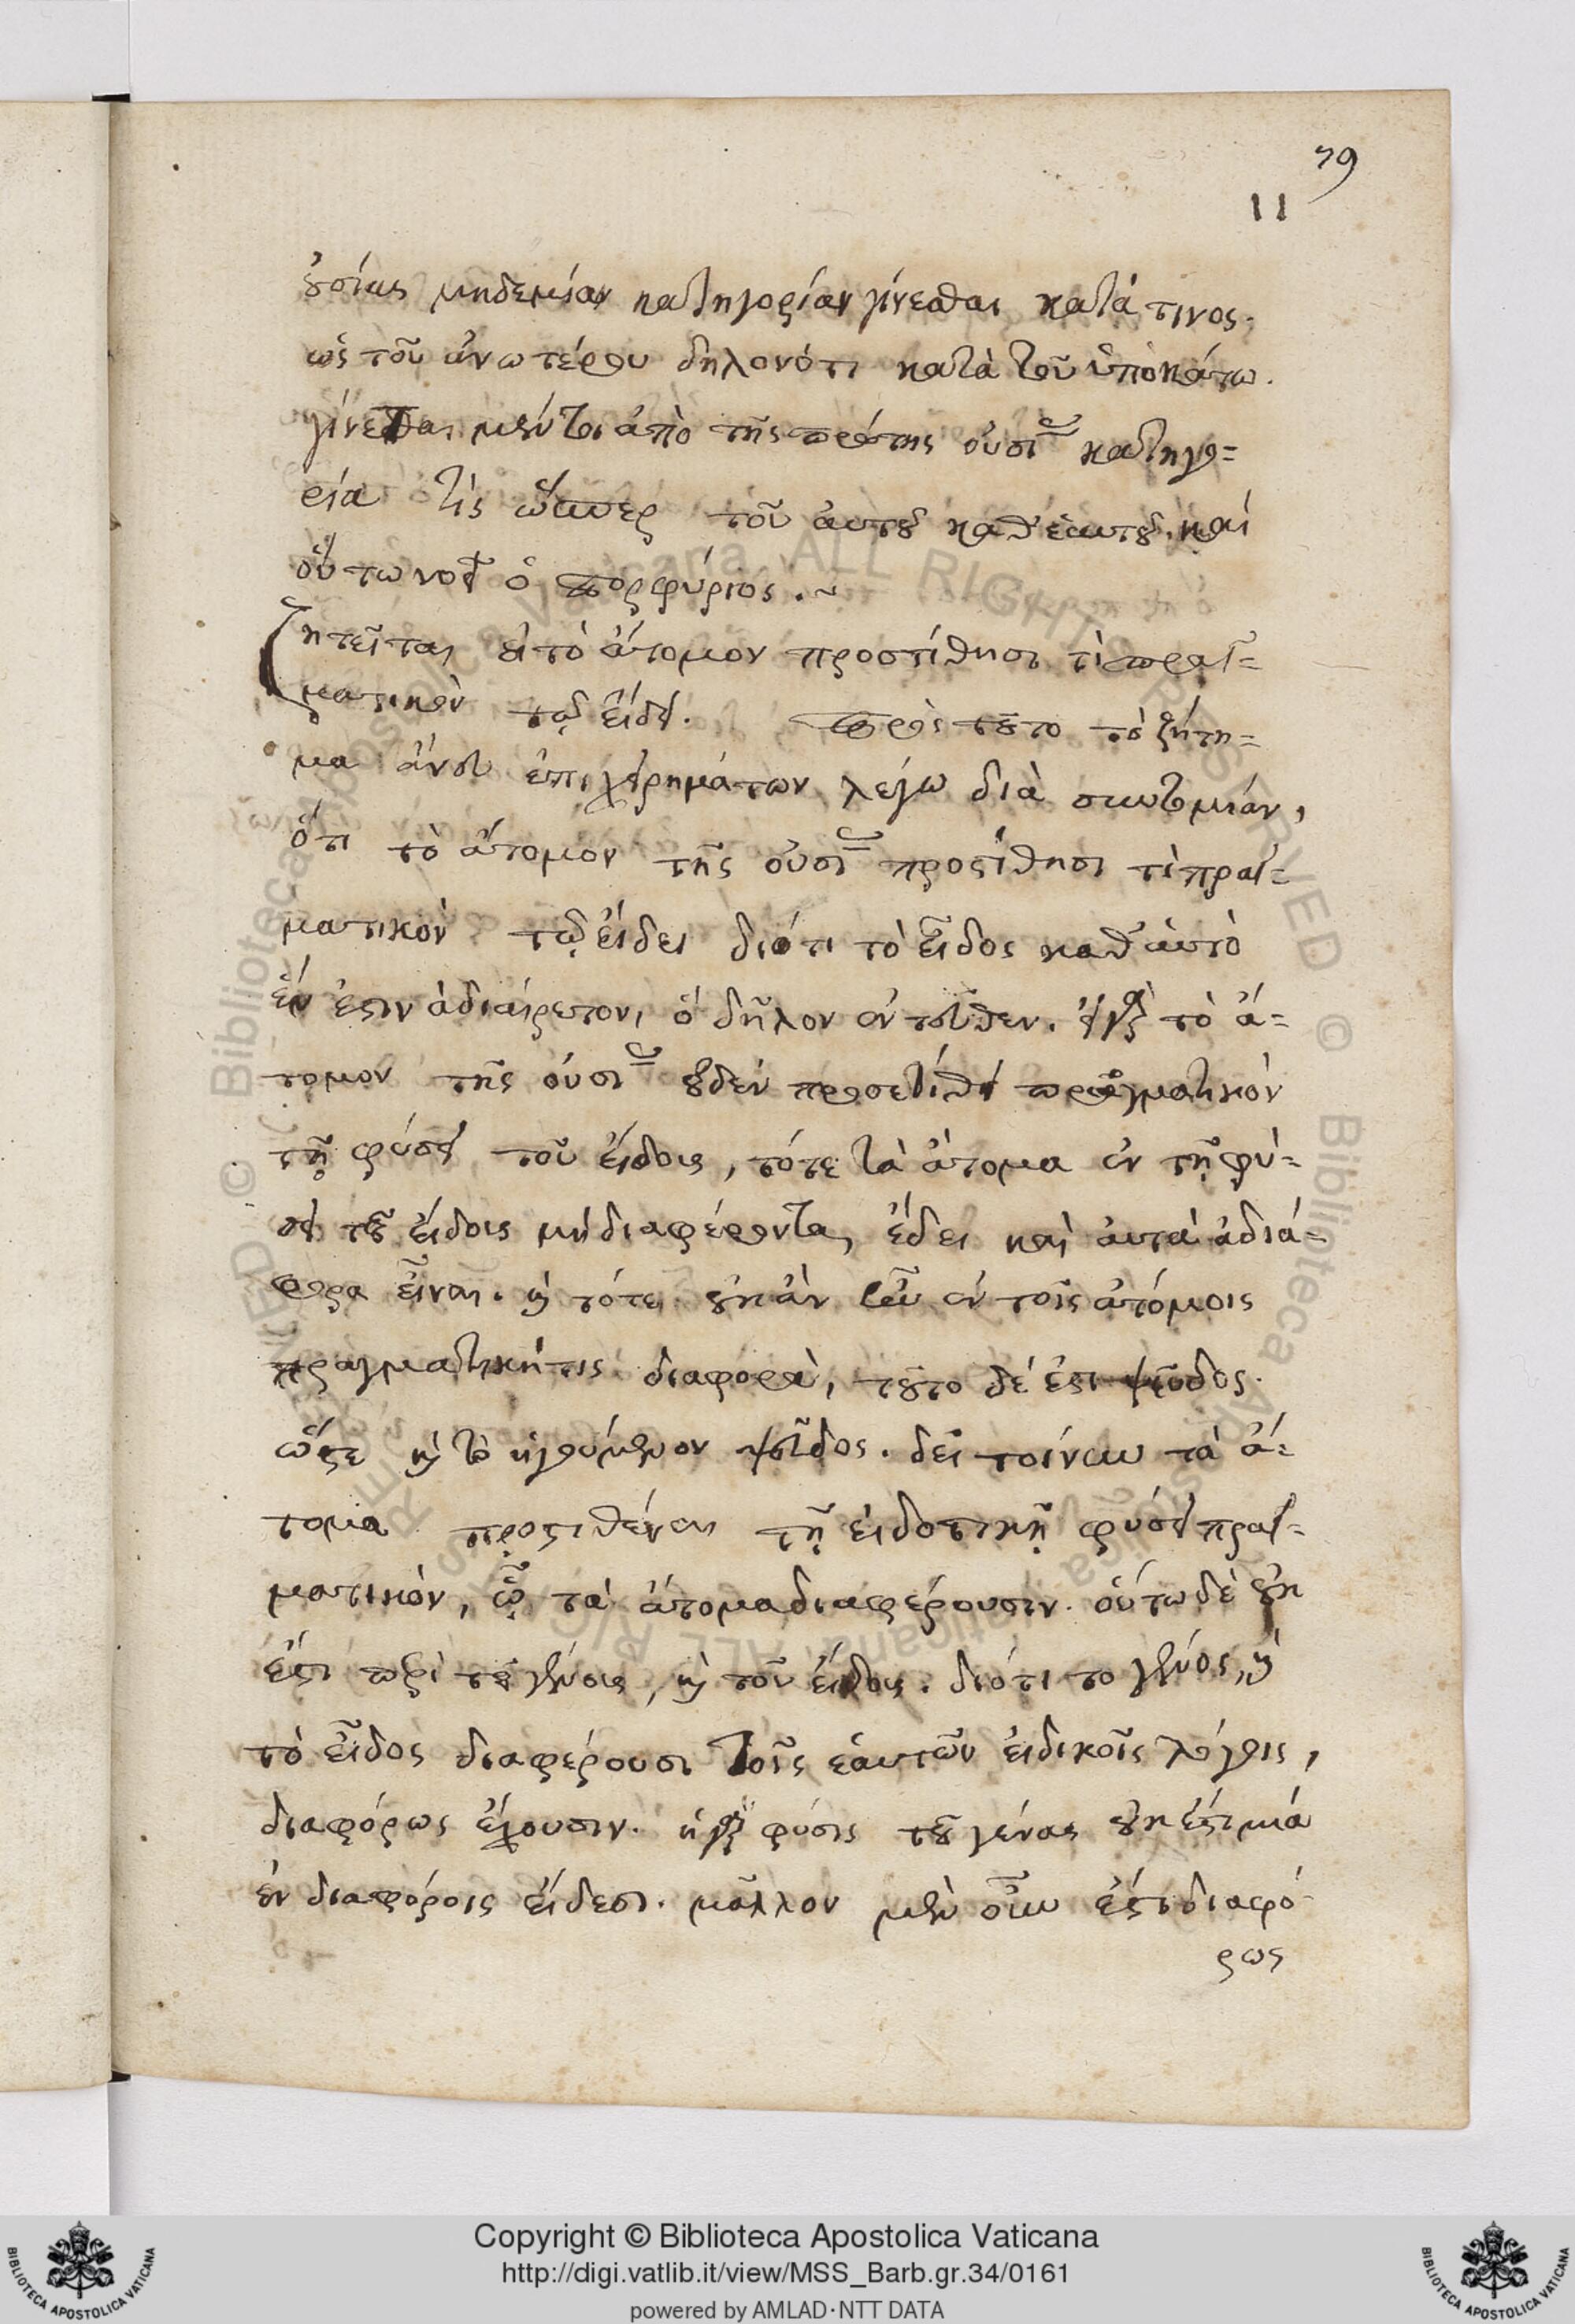 79
11
οὐσίας μηδεμίαν κατηγορίαν γίνεσθαι κατά τινος.
ὡς τοῦ ἀνωτέρου δηλονότι κατὰ τοῦ ὑποκάτω.
γίνεται μέντοι ἀπὸ τῆς πρώτης οὐσίας κατηγο=
ρία τὶς ὥσπερ τοῦ αὐτοῦ καθ' ἑαυτοῦ. καὶ
οὕτω νοεῖ ὁ πορφύριος.~
ζητεῖται εἰ τὸ ἄτομον προστίθησι τὶ πραγ=
ματικὸν τῷ εἴδει. πρὸς τοῦτο τὸ ζήτη=
μα ἄνευ ἐπιχειρημάτων λέγω διὰ συντομίαν,
ὅτι τὸ ἄτομον τῆς οὐσίας προστίθησι τὶ πραγ=
ματικὸν τῷ εἴδει διότι τὸ εἶδος καθ' αὑτὸ
ἕν ἐστιν ἀδιαίρετον, ὃ δῆλον ἐντεῦθεν. εἰ γὰρ τὸ ἄ=
τομον τῆς οὐσίας οὐδὲν προσετίθει πραγματικὸν
τῇ φύσει τοῦ εἴδους, τότε τὰ ἄτομα ἐν τῇ φύ=
σει τοῦ εἴδους μὴ διαφέροντα, ἔδει καὶ αὐτὰ ἀδιά=
φορα εἶναι. καὶ τότε οὐκ ἂν ἐν τοῖς ἀτόμοις
πραγματική τις διαφορὰ, τοῦτο δέ ἐστι ψεῦδος.
ὥστε καὶ τὸ ἡγούμενον ψεῦδος. δεῖ τοίνυν τὰ ἄ=
τομα προστιθέναι τῇ εἰδοτικῇ φύσει πραγ=
ματικὸν, ᾧ τὰ ἄτομα διαφέρουσιν. οὕτω δὲ οὐκ
ἔστι περὶ τοῦ γένους, καὶ τοῦ εἴδους. διότι το γένος, καὶ
τὸ εἶδος διαφέρουσι τοῖς ἑαυτῶν εἰδικοῖς λόγοις,
διαφόρως ἔχουσιν. ἡ γὰρ φύσις τοῦ γένους οὐκ ἔστι μιά
ἐν διαφόροις εἴδεσι. μᾶλλον μὲν οὖν ἐστι διαφό
ρως
Copyright © Biblioteca Apostolica Vaticana
http://digi.vatlib.it/view/MSS_Barb.gr.34/0161
powered by AMLAD·NTT DATA